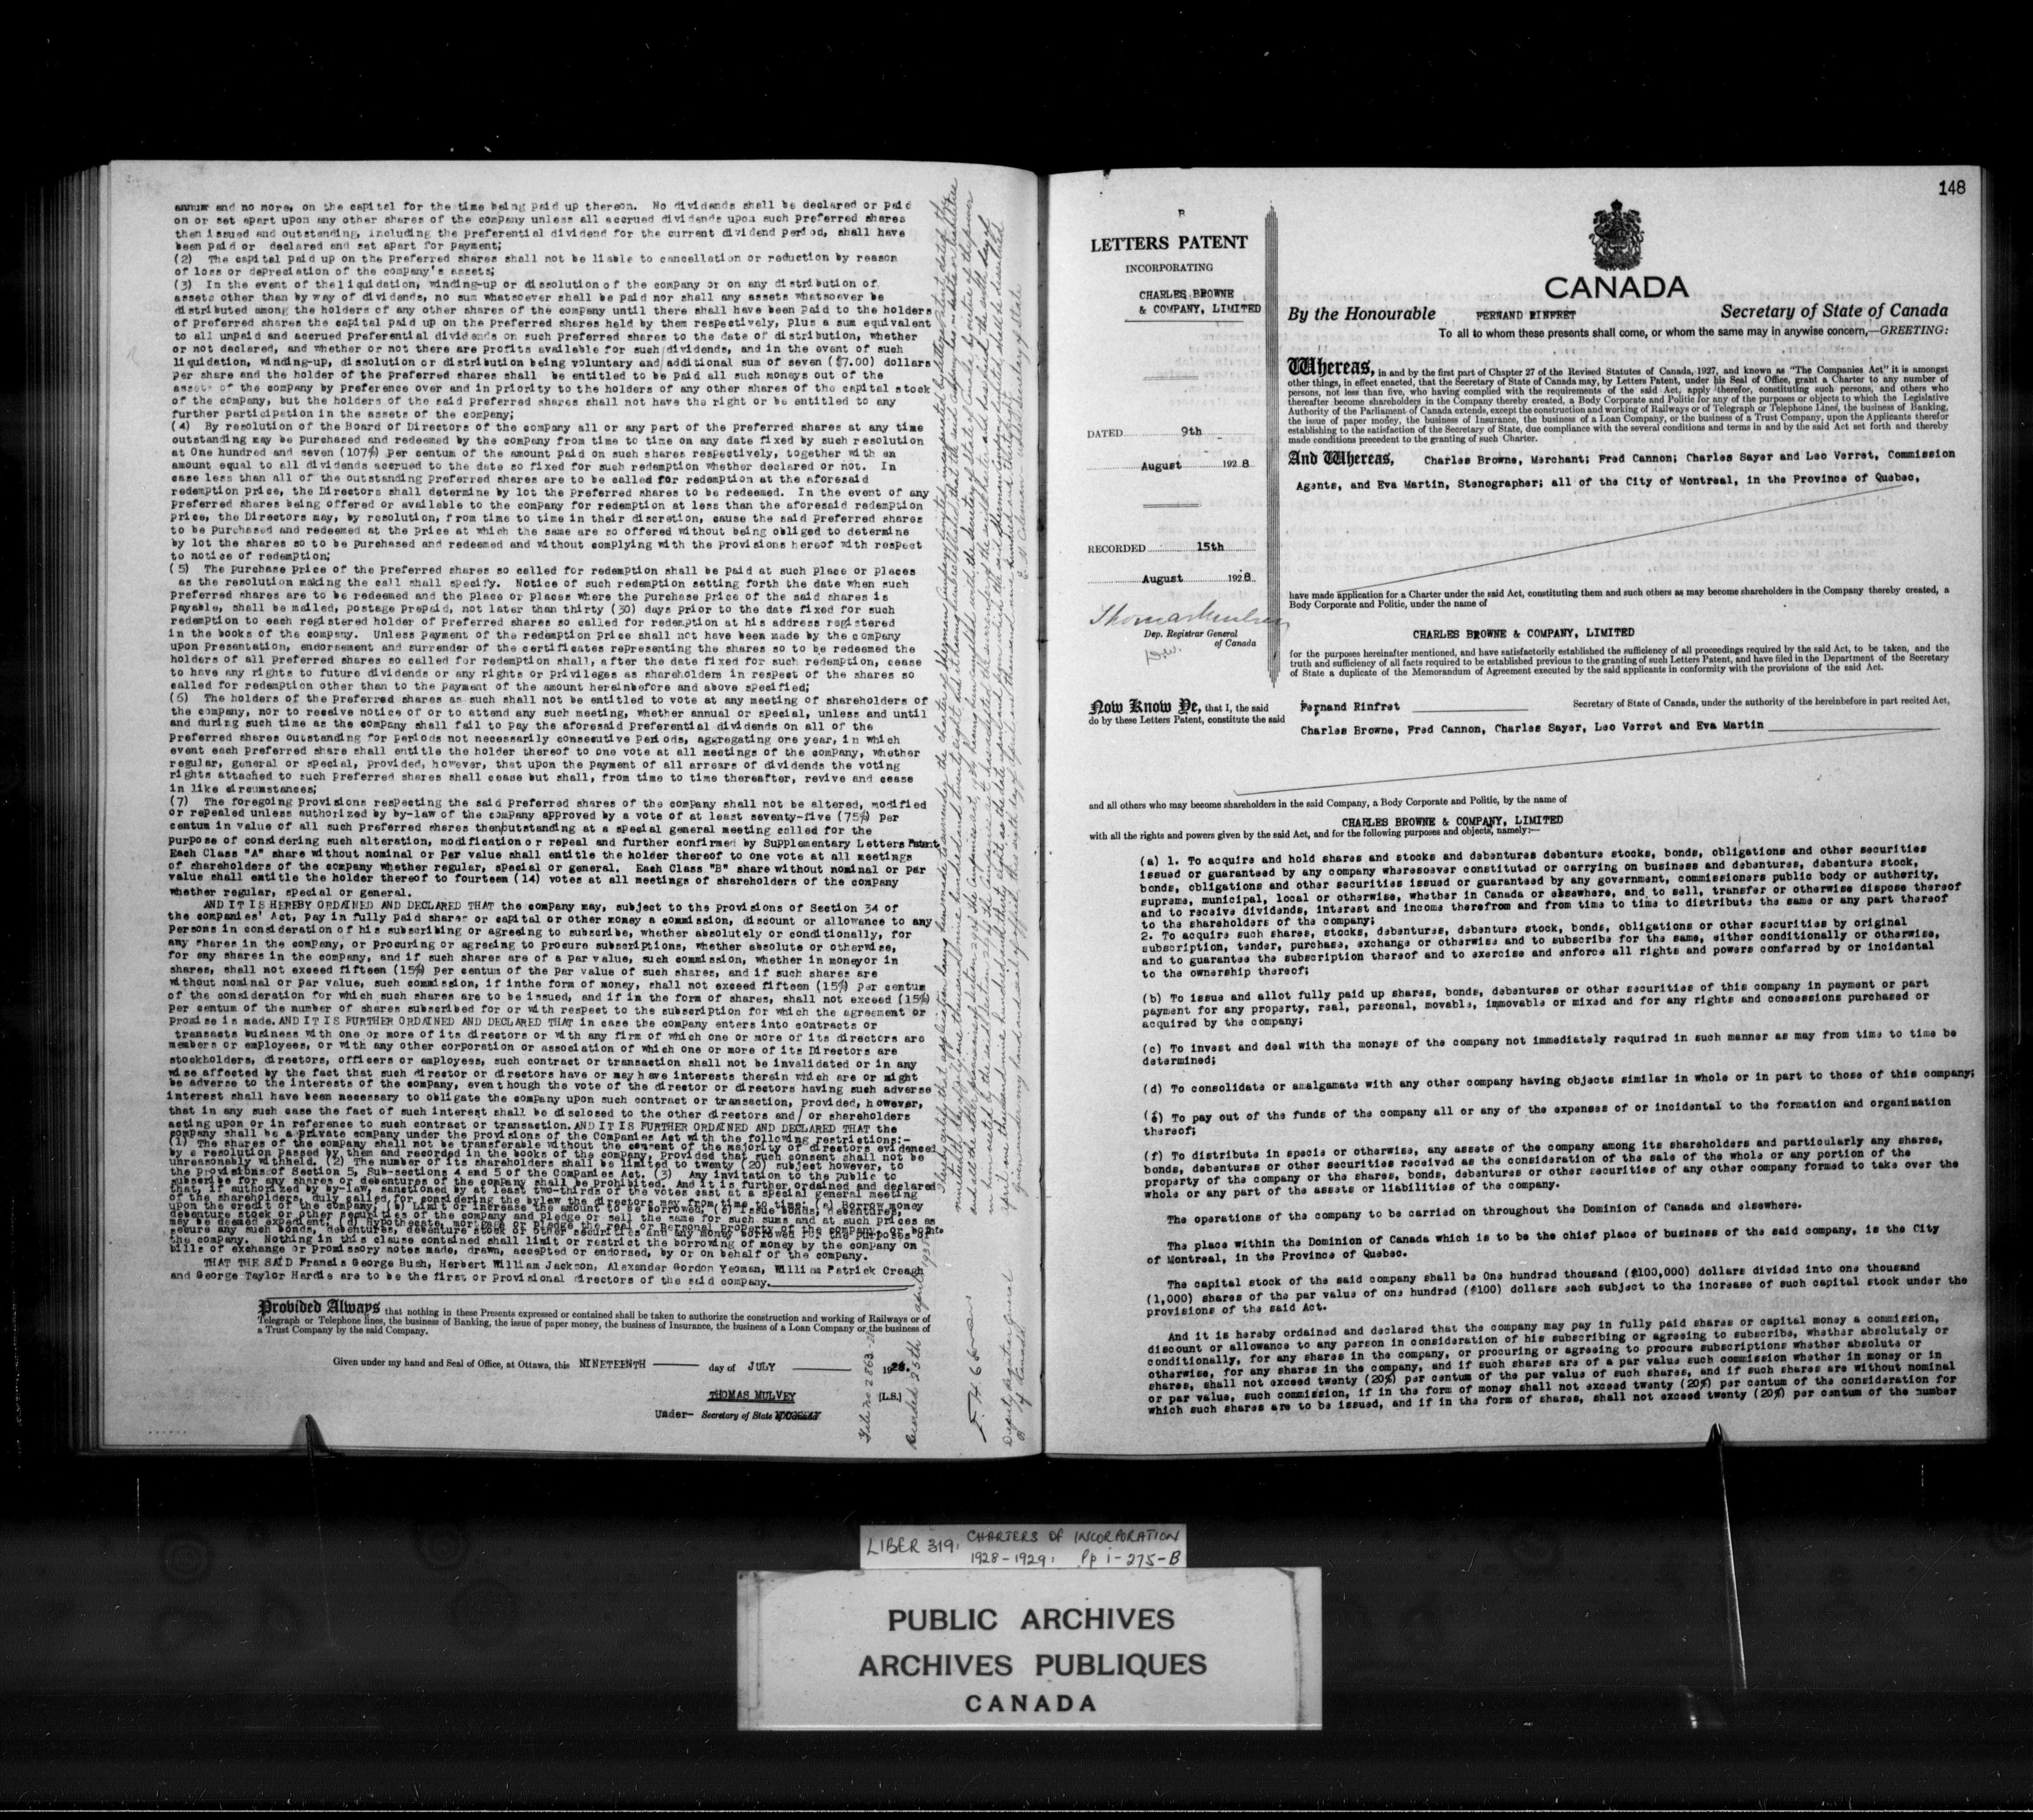 annum and no more, on the capital for the time being paid up thereon. No dividends shall be declared or paid
on or set apart upon any other shares of the company unless all accrued dividends upon such preferred shares
then issued and outstanding, including the preferential dividend for the current dividend period, shall have
been paid or declared and set apart for payment;
(2) The capital paid up on the preferred shares shall not be liable to cancellation or reduction by reason
of loss or depreciation of the company's assets;
(3) In the event of the liquidation, winding-up or dissolution of the company or on any distribution of
assets other than by way of dividends, no sum whatsoever shall be paid nor shall any assets whatsoever be
distributed among the holders of any other shares of the company until there shall have been paid to the holders
of preferred shares the capital paid up on the preferred shares held by them respectively, plus a sum equivalent
to all unpaid and accrued preferential dividends on such preferred shares to the date of distribution, whether
or not declared, and whether or not there are profits available for such dividends, and in the event of such
liquidation, winding-up, dissolution or distribution being voluntary and additional sum of seven ($7.00) dollars
per share and the holder of the preferred shares shall be entitled to be paid all such moneys out of the
assets of the company by preference over and in priority to the holders of any other shares of the capital stock
of the company, but the holders of the said preferred shares shall not have the right or be entitled to any
further participation in the assets of the company;
(4) By resolution of the Board of Directors of the company all or any part of the preferred shares at any time
outstanding may be purchased and redeemed by the company from time to time on any date fixed by such resolution
at One hundred and seven (107%) per centum of the amount paid on such shares respectively, together with an
amount equal to all dividends accrued to the date so fixed for such redemption whether declared or not. In
case less than all of the outstanding preferred shares are to be called for redemption at the aforesaid
redemption price, the Directors shall determine by lot the preferred shares to be redeemed. In the event of any
preferred shares being offered or available to the company for redemption at less than the aforesaid redemption
price, the Directors may, by resolution, from time to time in their discretion, cause the said preferred shares
to be purchased and redeemed at the price at which the same are so offered without being obliged to determine
by lot the shares so to be purchased and redeemed and without complying with the provisions hereof with respect
to notice of redemption;
(5) The purchase price of the preferred shares so called for redemption shall be paid at such place or places
as the resolution making the call shall specify. Notice of such redemption setting forth the date when such
preferred shares are to be redeemed and the place or places where the purchase price of the said shares is
payable, shall be mailed, postage prepaid, not later than thirty (30) days prior to the date fixed for such
redemption to each registered holder of preferred shares so called for redemption at his address registered
in the books of the company. Unless payment of the redemption price shall not have been made by the company
upon presentation, endorsement and surrender of the certificates representing the shares so to be redeemed the
holders of all preferred shares so called for redemption shall, after the date fixed for such redemption, cease
to have any rights to future dividends or any rights or privileges as shareholders in respect of the shares so
called for redemption other than to the payment of the amount hereinbefore and above specified;
(6) The holders of the preferred shares as such shall not be entitled to vote at any meeting of shareholders of
the company, nor to receive notice of or to attend any such meeting, whether annual or special, unless and until
and during such time as the company shall fail to pay the aforesaid preferential dividends on all of the
preferred shares outstanding for periods not necessarily consecutive periods, aggregating one year, in which
event each preferred share shall entitle the holder thereof to one vote at all meetings of the company, whether
regular, general or special, provided, however, that upon the payment of all arrears of dividends the voting
rights attached to such preferred shares shall cease but shall, from time to time thereafter, revive and cease
in like circumstances;
(7) The foregoing provisions respecting the said preferred shares of the company shall not be altered, modified
or repealed unless authorized by by-law of the company approved by a vote of at least seventy-five (75%) per
centum in value of all such preferred shares then/outstanding at a special general meeting called for the
purpose of considering such alteration, modification or repeal and further confirmed by Supplementary Letters Patent.
Each Class "A" share without nominal or par value shall entitle the holder thereof to one vote at all meetings
of shareholders of the company whether regular, special or general. Each Class "B" share without nominal or par
value shall entitle the holder thereof to fourteen (14) votes at all meetings of shareholders of the company
whether regular, special or general.
AND IT IS HEREBY ORDAINED AND DECLARED THAT the company may, subject to the provisions of Section 34 of
the companies' Act, pay in fully paid shares or capital or other money a commission, discount or allowance to any
persons in consideration of his subscribing or agreeing to subscribe, whether absolutely or conditionally, for
any shares in the company, or procuring or agreeing to procure subscriptions, whether absolute or otherwise,
for any shares in the company, and if such shares are of a par value, such commission, whether in money or in
shares, shall not exceed fifteen (15%) per centum of the par value of such shares, and if such shares are
without nominal or par value, such commission, if in the form of money, shall not exceed fifteen (15%) per centum
of the consideration for which such shares are to be issued, and if in the form of shares, shall not exceed (15%)
per centum of the number of shares subscribed for or with respect to the subscription for which the agreement or
promise is made. AND IT IS FURTHER ORDAINED AND DECLARED THAT in case the company enters into contracts or
transacts business with one or more of its directors or with any firm of which one or more of its directors are
members or employees, or with any other corporation or association of which one or more of its Directors are
stockholders, directors, officers or employees, such contract or transaction shall not be invalidated or in any
wise affected by the fact that such director or directors have or may have interests therein which are or might
be adverse to the interests of the company, even though the vote of the director or directors having such adverse
interest shall have been necessary to obligate the company upon such contract or transaction, provided, however,
that in any such case the fact of such interest shall be disclosed to the other directors and/or shareholders
acting upon or in reference to such contract or transaction. AND IT IS FURTHER ORDAINED AND DECLARED THAT the
company shall be a private company under the provisions of the Companies Act with the following restrictions:-
(1) The shares of the company shall not be transferable without the consent of the majority of directors evidenced
by a resolution passed by them and recorded in the books of the company, provided that such consent shall not be
unreasonably withheld. (2) The number of its shareholders shall be limited to twenty (20) subject however, to
the provisions of Section 5, Sub-sections 4 and 5 of the Companies Act. (3) Any invitation to the public to
subscribe for any shares or debentures of the company shall be prohibited. And it is further ordained and declared
that, if authorized by by-law, sanctioned by at least two-thirds of the votes cast at a special general meeting
of the shareholders, duly called for considering the bylaw the directors may from time to time: (a) Borrow money
upon the credit of the company; (b) Limit or increase the amount to be borrowed; (c) Issue bonds, debentures,
debenture stock or other securities of the company and pledge or sell the same for such sums and at such prices as
may be deemed expedient; (d) Hypothecate, mortgage or pledge the real or personal property of the company, or both, to
secure any such bonds, debentures, debenture stock or other securities and any money borrowed for the purposes of
the company. Nothing in this clause contained shall limit or restrict the borrowing of money by the company on
bills of exchange or promissory notes made, drawn, accepted or endorsed, by or on behalf of the company.
THAT THE SAID Francis George Bush, Herbert William Jackson, Alexander Gordon Yeoman, William Patrick Creagh
and George Taylor Hardie are to be the first or provisional directors of the said company.
Provided Always that nothing in these Presents expressed or contained shall be taken to authorize the construction and working of Railways or of
Telegraph or Telephone lines, the business of Banking, the issue of paper money, the business of Insurance, the business of a Loan Company or the business of
a Trust Company by the said Company.
Given under my hand and Seal of Office, at Ottawa, this NINETEENTH day of JULY 1928.
THOMAS MULVEY [L.S.]
Under- Secretary of State of Canada
Recorded 25th April 1938
148
LETTERS PATENT
INCORPORATING
CHARLES BROWNE
& COMPANY, LIMITED
DATED 9th
August 1928
RECORDED 15th
August 1928
Thomas Mulvey
Dep. Registrar General
of Canada
CANADA
By the Honourable FERNAND RINFRET Secretary of State of Canada
To all to whom these presents shall come, or whom the same may in anywise concern,—GREETING:
Whereas, in and by the first part of Chapter 27 of the Revised Statutes of Canada, 1927, and known as "The Companies Act" it is amongst
other things, in effect enacted, that the Secretary of State of Canada may, by Letters Patent, under his Seal of Office, grant a Charter to any number of
persons, not less than five, who having complied with the requirements of the said Act, apply therefor, constituting such persons, and others who
thereafter become shareholders in the Company thereby created, a Body Corporate and Politic for any of the purposes or objects to which the Legislative
Authority of the Parliament of Canada extends, except the construction and working of Railways or of Telegraph or Telephone Lines, the business of Banking,
the issue of paper money, the business of Insurance, the business of a Loan Company, or the business of a Trust Company, upon the Applicants therefor
establishing to the satisfaction of the Secretary of State, due compliance with the several conditions and terms in and by the said Act set forth and thereby
made conditions precedent to the granting of such Charter.
And Whereas, Charles Browne, Merchant; Fred Cannon; Charles Sayer and Leo Verret, Commission
Agents, and Eva Martin, Stenographer; all of the City of Montreal, in the Province of Quebec,
have made application for a Charter under the said Act, constituting them and such others as may become shareholders in the Company thereby created, a
Body Corporate and Politic, under the name of
CHARLES BROWNE & COMPANY, LIMITED
for the purposes hereinafter mentioned, and have satisfactorily established the sufficiency of all proceedings required by the said Act, to be taken, and the
truth and sufficiency of all facts required to be established previous to the granting of such Letters Patent, and have filed in the Department of the Secretary
of State a duplicate of the Memorandum of Agreement executed by the said applicants in conformity with the provisions of the said Act.
Now Know Ye, that I, the said Fernand Rinfret Secretary of State of Canada, under the authority of the hereinbefore in part recited Act,
do by these Letters Patent, constitute the said
Charles Browne, Fred Cannon, Charles Sayer, Leo Verret and Eva Martin
and all others who may become shareholders in the said Company, a Body Corporate and Politic, by the name of
CHARLES BROWNE & COMPANY, LIMITED
with all the rights and powers given by the said Act, and for the following purposes and objects, namely:—
(a) 1. To acquire and hold shares and stocks and debentures debenture stocks, bonds, obligations and other securities
issued or guaranteed by any company wheresoever constituted or carrying on business and debentures, debenture stock,
bonds, obligations and other securities issued or guaranteed by any government, commissioners public body or authority,
supreme, municipal, local or otherwise, whether in Canada or elsewhere, and to sell, transfer or otherwise dispose thereof
and to receive dividends, interest and income therefrom and from time to time to distribute the same or any part thereof
to the shareholders of the company;
2. To acquire such shares, stocks, debentures, debenture stock, bonds, obligations or other securities by original
subscription, tender, purchase, exchange or otherwise and to subscribe for the same, either conditionally or otherwise,
and to guarantee the subscription thereof and to exercise and enforce all rights and powers conferred by or incidental
to the ownership thereof;
(b) To issue and allot fully paid up shares, bonds, debentures or other securities of this company in payment or part
payment for any property, real, personal, movable, immovable or mixed and for any rights and concessions purchased or
acquired by the company;
(c) To invest and deal with the moneys of the company not immediately required in such manner as may from time to time be
determined;
(d) To consolidate or amalgamate with any other company having objects similar in whole or in part to those of this company;
(e) To pay out of the funds of the company all or any of the expenses of or incidental to the formation and organization
thereof;
(f) To distribute in specie or otherwise, any assets of the company among its shareholders and particularly any shares,
bonds, debentures or other securities received as the consideration of the sale of the whole or any portion of the
property of the company or the shares, bonds, debentures or other securities of any other company formed to take over the
whole or any part of the assets or liabilities of the company.
The operations of the company to be carried on throughout the Dominion of Canada and elsewhere.
The place within the Dominion of Canada which is to be the chief place of business of the said company, is the City
of Montreal, in the Province of Quebec.
The capital stock of the said company shall be One hundred thousand ($100,000) dollars divided into one thousand
(1,000) shares of the par value of one hundred ($100) dollars each subject to the increase of such capital stock under the
provisions of the said Act.
And it is hereby ordained and declared that the company may pay in fully paid shares or capital money a commission,
discount or allowance to any person in consideration of his subscribing or agreeing to subscribe, whether absolutely or
conditionally, for any shares in the company, or procuring or agreeing to procure subscriptions whether absolute or
otherwise, for any shares in the company, and if such shares are of a par value such commission whether in money or in
shares, shall not exceed twenty (20%) per centum of the par value of such shares, and if such shares are without nominal
or par value, such commission, if in the form of money shall not exceed twenty (20%) per centum of the consideration for
which such shares are to be issued, and if in the form of shares, shall not exceed twenty (20%) per centum of the number
LIBER 319: CHARTERS OF INCORPORATION
1928-1929: Pp i-275-B
PUBLIC ARCHIVES
ARCHIVES PUBLIQUES
CANADA